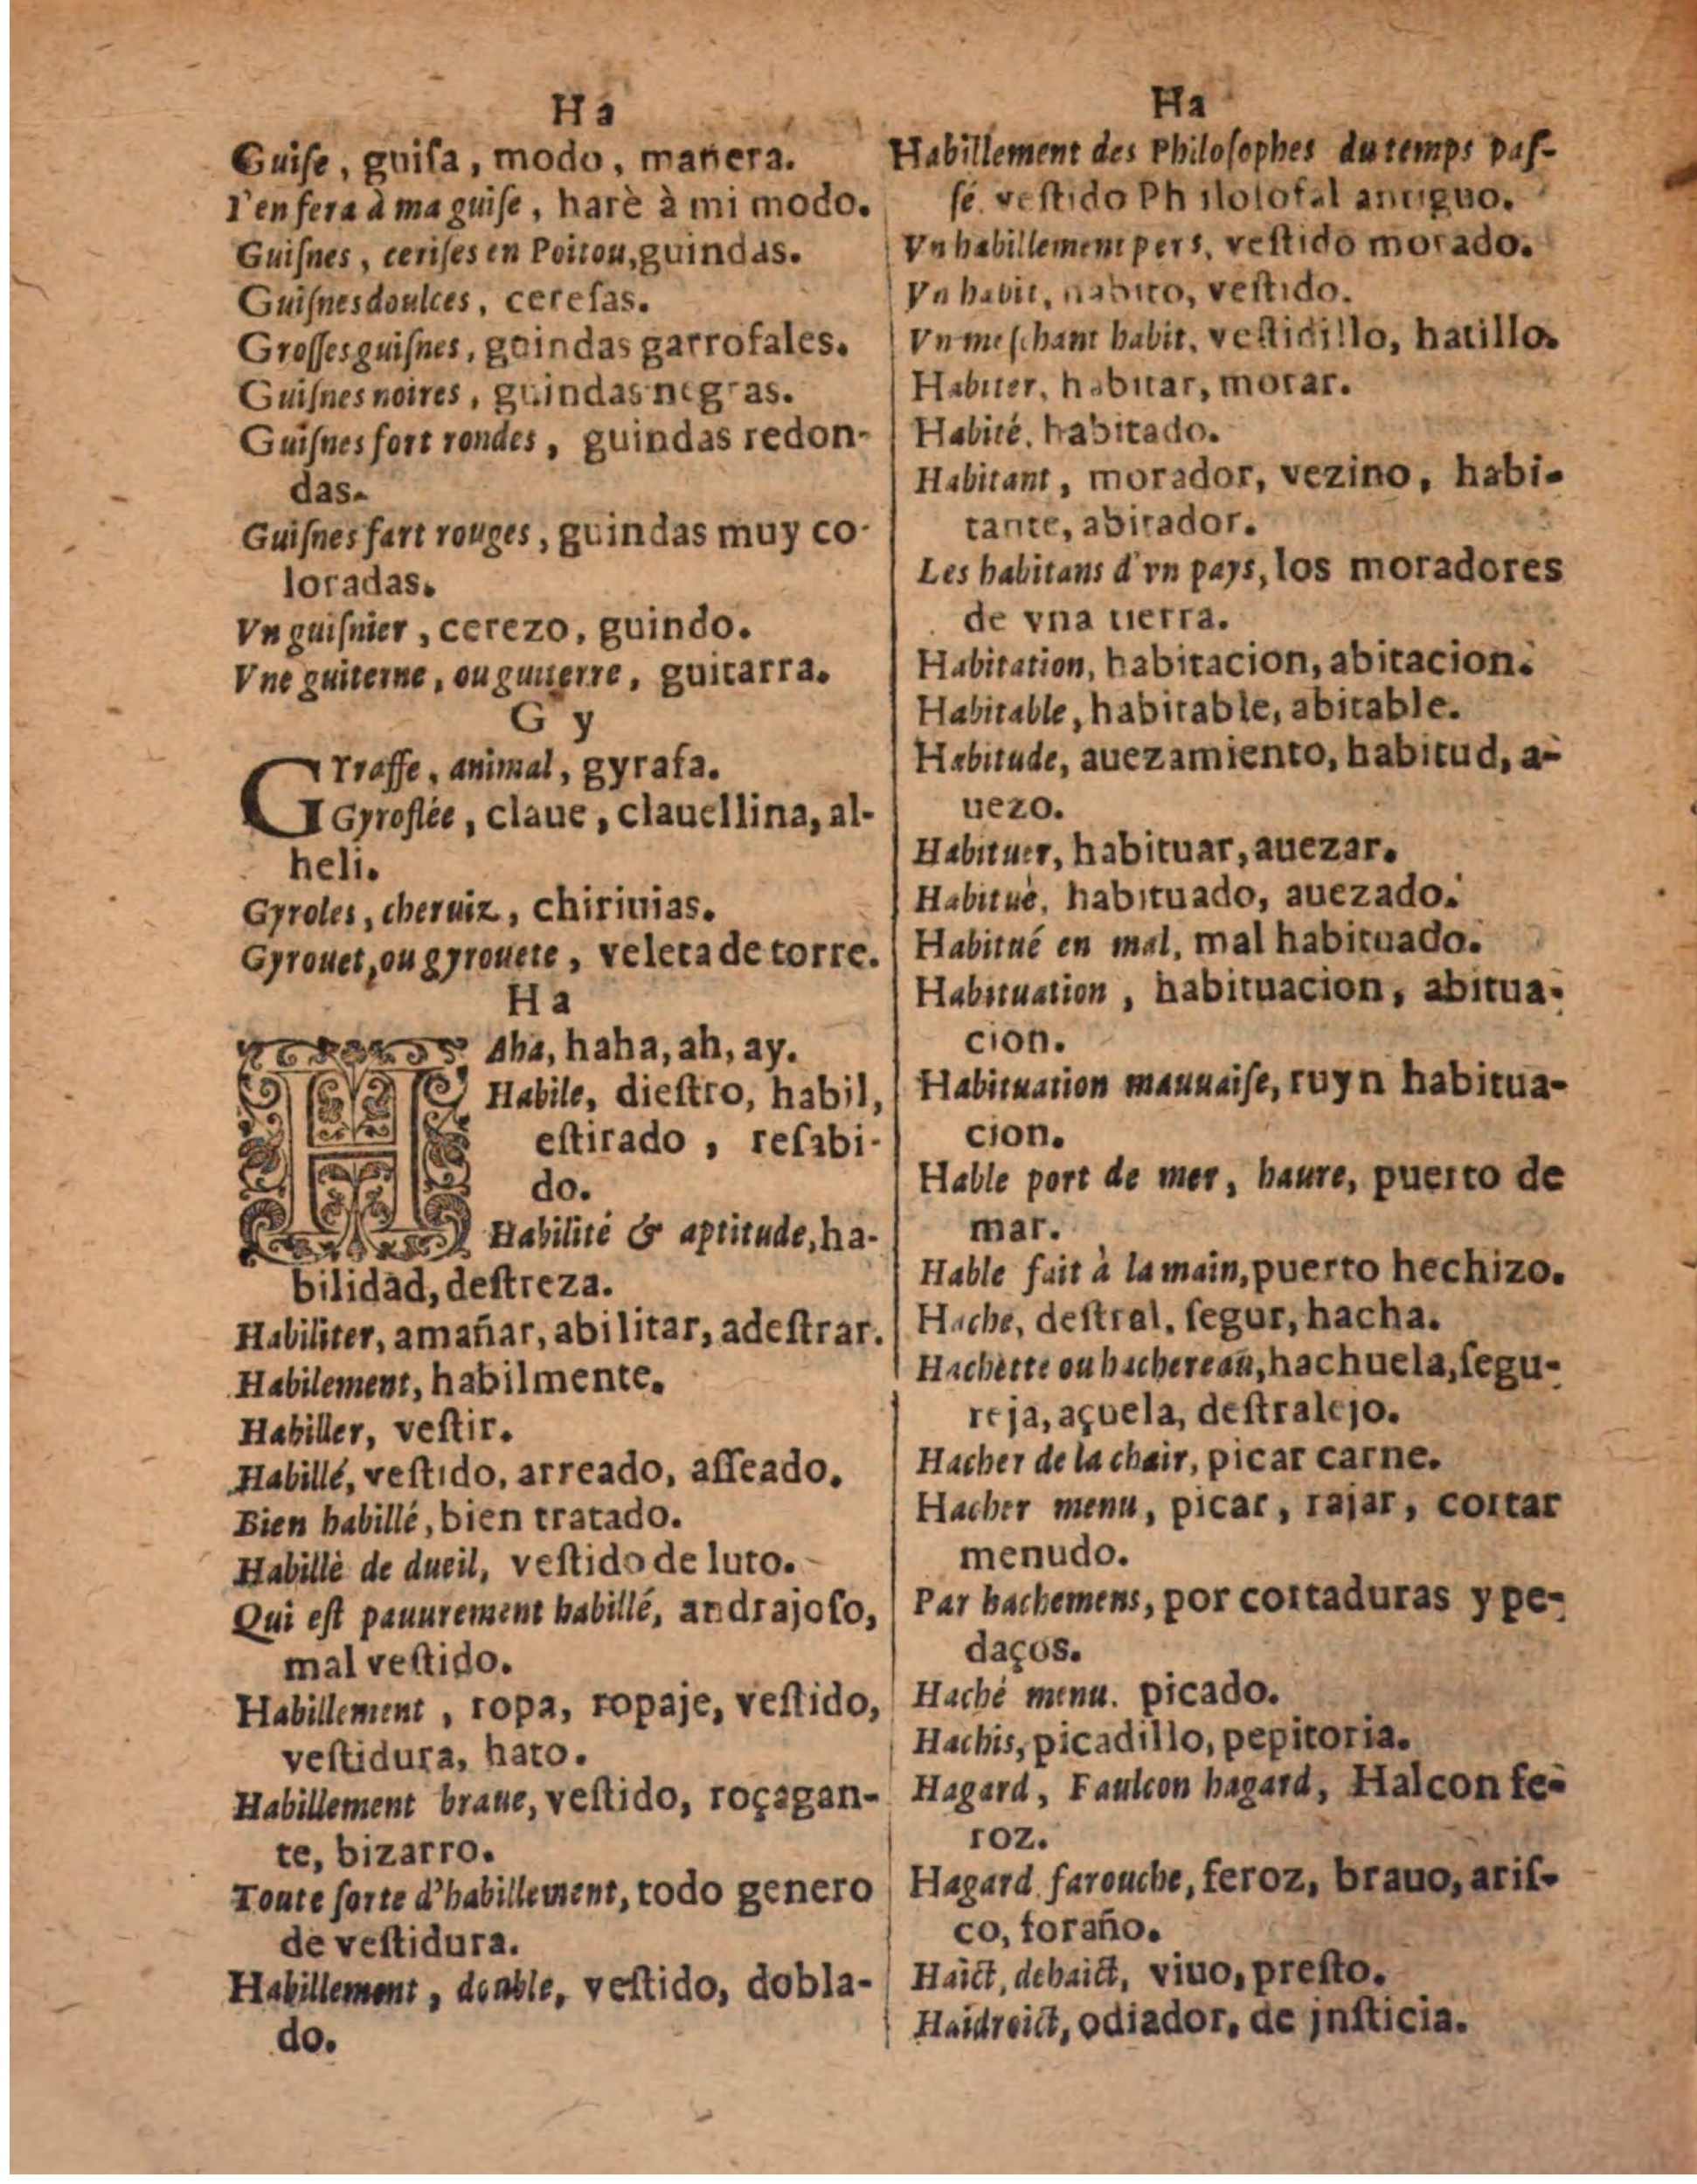 Ha
Guiſe, guiſa, modo, manera.
I'en fera à ma guiſe, harè à mi modo.
Guiſnes, ceriſes en Poitou, guindas.
Guiſnes doulces, cereſas.
Groſſes guiſnes, guindas garrofales.
Guiſnes noires, guindas negras.
Guiſnes fort rondes, guindas redon-
das.
Guiſnes fart rouges, guindas muy co-
loradas.
Vn guiſnier, cerezo, guindo.
Vne guiterne, ou guiterre, guitarra.
G y
GYraffe, animal, gyrafa.
Gyroflée, claue, clauellina, al-
heli.
Gyroles, cheruiz, chiriuias.
Gyrouet, ou gyrouete, veleta de torre.
Ha
HAha, haha, ah, ay.
Habile, dieſtro, habil,
eſtirado, reſabi-
do.
Habilité & aptitude, ha-
bilidad, deſtreza.
Habiliter, amañar, abilitar, adeſtrar.
Habilement, habilmente.
Habiller, veſtir.
Habillé, veſtido, arreado, aſſeado.
Bien habillé, bien tratado.
Habillè de dueil, veſtido de luto.
Qui eſt pauurement habillé, andrajoſo,
mal veſtido.
Habillement, ropa, ropaje, veſtido,
veſtidura, hato.
Habillement braue, veſtido, roçagan-
te, bizarro.
Toute ſorte d'habillement, todo genero
de veſtidura.
Habillement, double, veſtido, dobla-
do.
Ha
Habillement des Philoſophes du temps paſ-
ſé. veſtido Philoſofal antiguo.
Vn habillement pers, veſtido morado.
Vn habit, habito, veſtido.
Vn meſchant habit, veſtidillo, hatillo.
Habiter, habitar, morar.
Habité, habitado.
Habitant, morador, vezino, habi-
tante, abitador.
Les habitans d'vn pays, los moradores
de vna tierra.
Habitation, habitacion, abitacion.
Habitable, habitable, abitable.
Habitude, auezamiento, habitud, a-
uezo.
Habituer, habituar, auezar.
Habituè, habituado, auezado.
Habitué en mal, mal habituado.
Habituation, habituacion, abitua-
cion.
Habituation mauuaiſe, ruyn habitua-
cion.
Hable port de mer, haure, puerto de
mar.
Hable fait à la main, puerto hechizo.
Hache, deſtral, ſegur, hacha.
Hachette ou hachereau, hachuela, ſegu-
reja, açuela, deſtralejo.
Hacher de la chair, picar carne.
Hacher menu, picar, rajar, cortar
menudo.
Par hachemens, por cortaduras y pe-
daços.
Haché menu. picado.
Hachis, picadillo, pepitoria.
Hagard, Faulcon hagard, Halcon fe-
roz.
Hagard farouche, feroz, brauo, ariſ-
co, foraño.
Haict, dehaict, viuo, preſto.
Haidroict, odiador, de jnſticia.